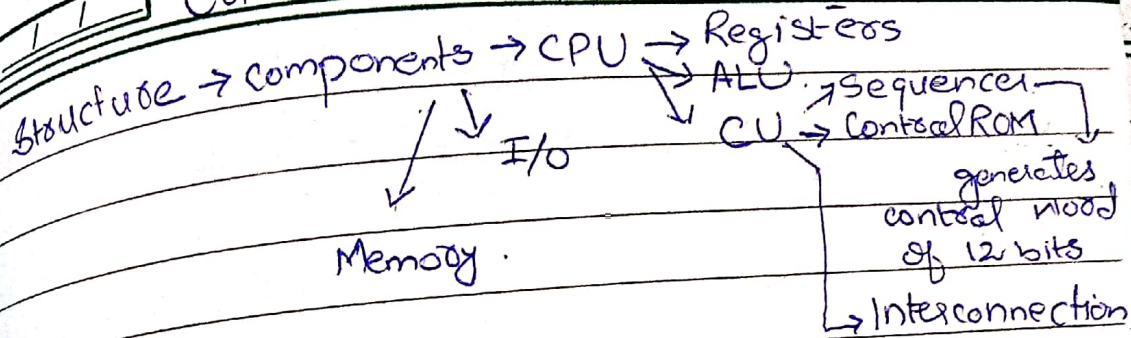 Structure → Components → CPU → Registers
ALU
CU → Sequencer
→ Control ROM
I/O
generates
control word
of 12 bits
Memory.
→ Interconnection